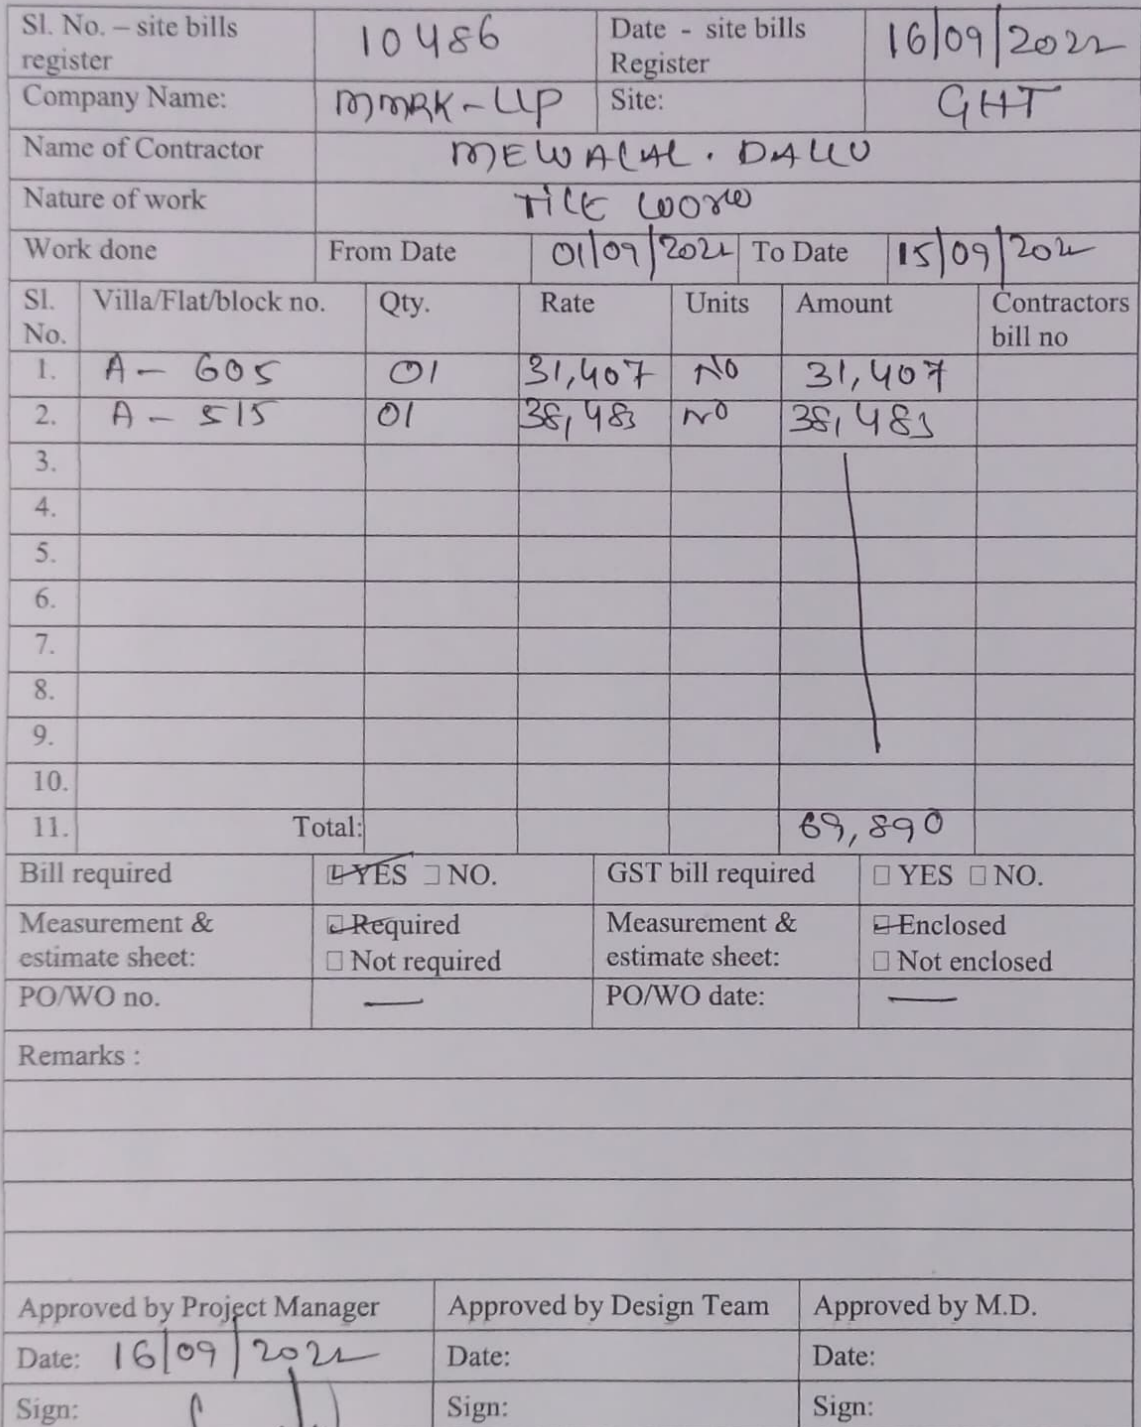 Sl. No. – site bills register 10486 Date - site bills Register 16/09/2022
Company Name: MMRK-LLP Site: GHT
Name of Contractor MEWALAL. DALLU
Nature of work TILE WORK
Work done From Date 01/09/2022 To Date 15/09/2022
Sl. No. Villa/Flat/block no. Qty. Rate Units Amount Contractors bill no
1. A - 605 01 31,407 No 31,407
2. A - 515 01 38,483 No 38,483
3.
4.
5.
6.
7.
8.
9.
10.
11. Total: 69,890
Bill required YES NO. GST bill required YES NO.
Measurement & estimate sheet: Required Not required Measurement & estimate sheet: Enclosed Not enclosed
PO/WO no. — PO/WO date: —
Remarks :
Approved by Project Manager Approved by Design Team Approved by M.D.
Date: 16/09/2022 Date: Date:
Sign: Sign: Sign: